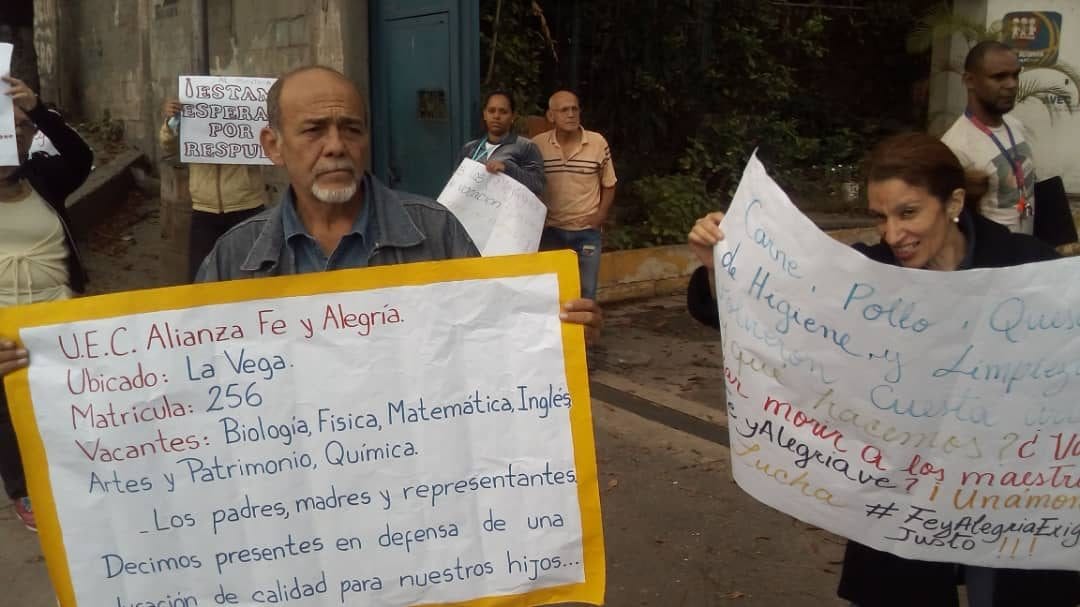 ¡ESTAM
ESPERA
POR
RESPU
U.E.C. Alianza Fe y Alegría.
Ubicado: La Vega.
Matrícula: 256
Vacantes: Biología, Física, Matemática, Inglés,
Artes y Patrimonio, Química.
_Los padres, madres y representantes.
Decimos presentes en defensa de una
de calidad para nuestros hijos...
Carne, Pollo, Queso
de Higiene, y Limpieza
Cuesta
qué hacemos? ¿Va
morir a los maestr
yAlegríAve? ¡Unámon
Lucha #FeyAlegríaExig
Justo !!!